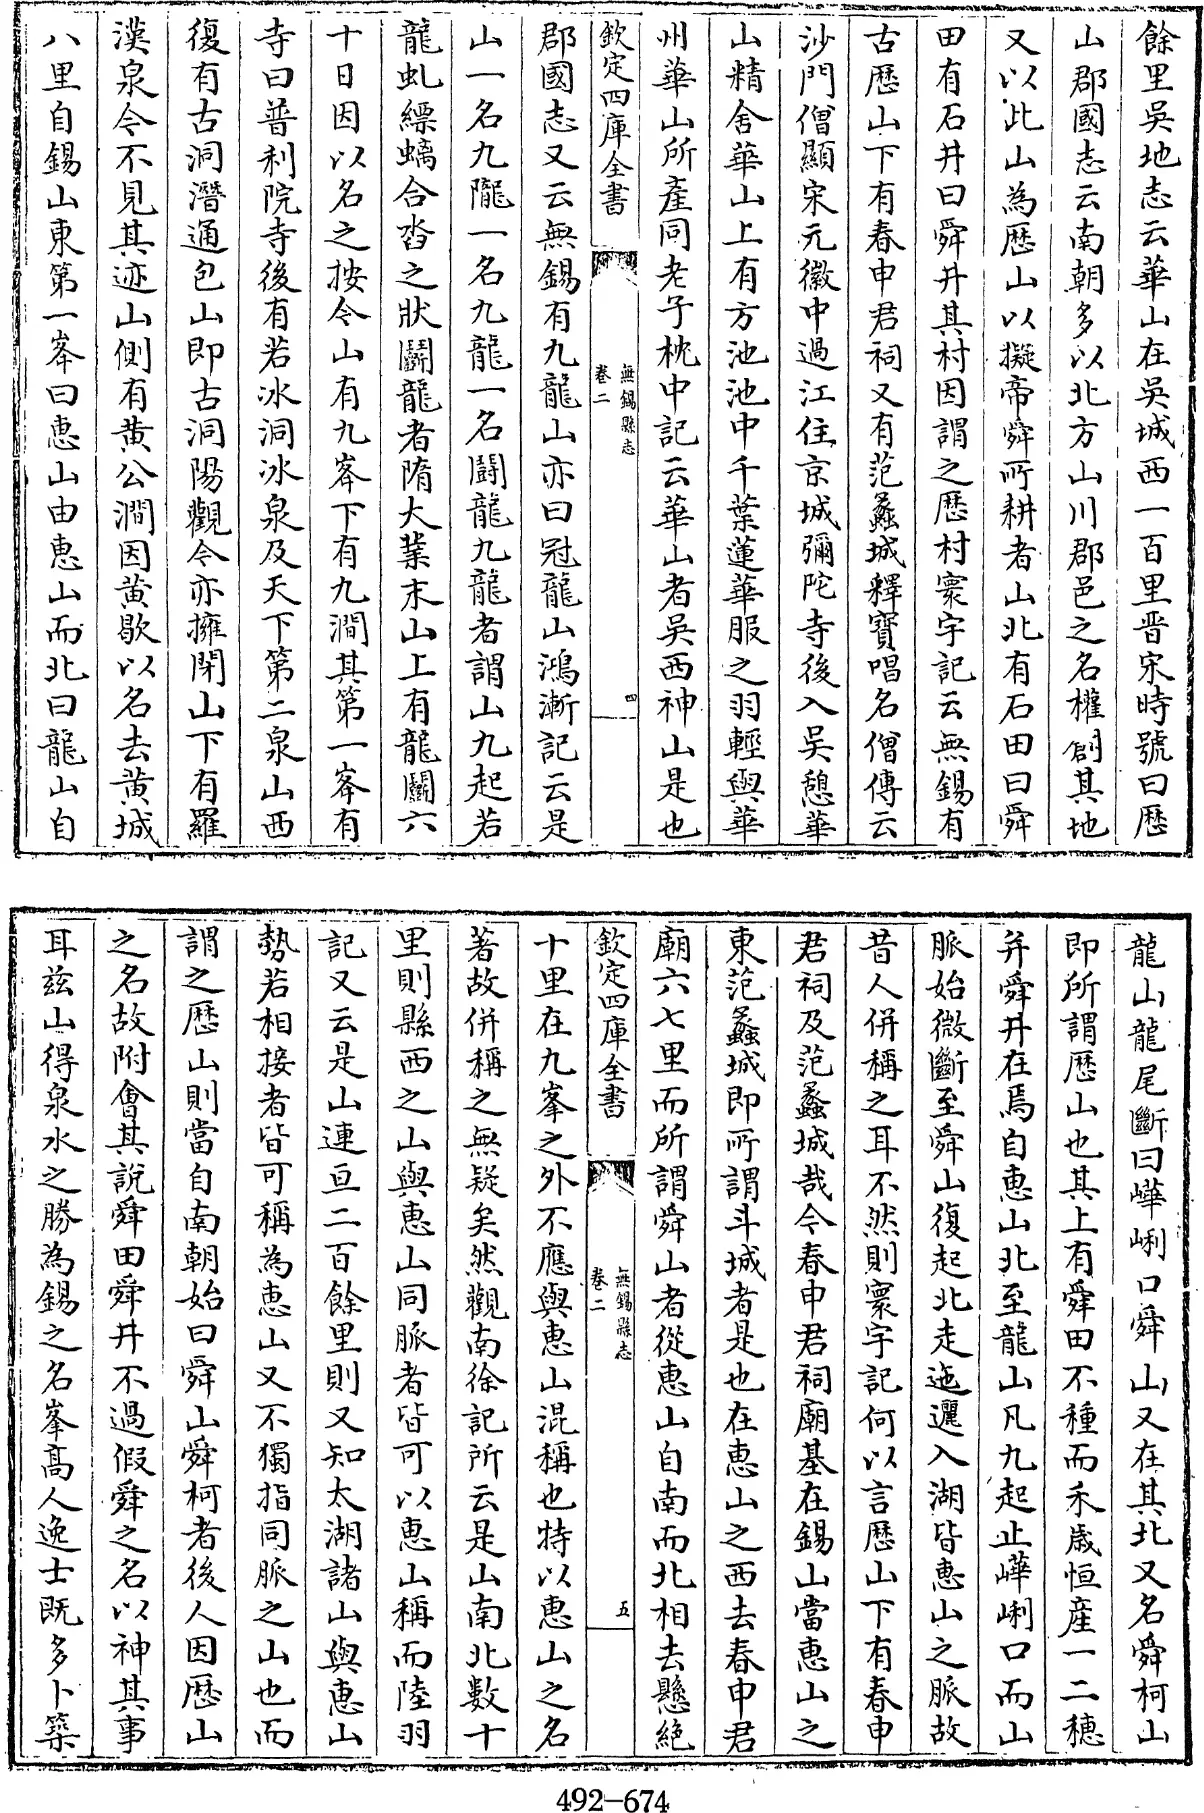 餘里吳地志云華山在吳城西一百里晋宋時號曰歴
山郡國志云南朝多以北方山川郡邑之名權創其地
又以此山為歴山以擬帝舜所耕者山北有石田曰舜
田有石井曰舜井其村因謂之歴村寰宇記云無錫有
古歴山下有春申君祠又有范蠡城釋寶唱名僧傳云
沙門僧顯宋元徽中過江住京城彌陀寺後入吳憩華
山精舍華山上有方池池中千葉蓮華服之羽輕與華
州華山所産同老子枕中記云華山者吳西神山是也
欽定四庫全書
無錫縣志
卷二
四
郡國志又云無錫有九龍山亦曰冠龍山鴻漸記云是
山一名九隴一名九龍一名鬬龍九龍者謂山九起若
龍虬縹螭合沓之狀鬬龍者隋大業末山上有龍鬬六
十日因以名之按令山有九峯下有九澗其第一峯有
寺曰普利院寺後有若冰洞冰泉及天下第二泉山西
復有古洞潛通包山即古洞陽觀令亦擁閉山下有羅
漢泉令不見其迹山側有黄公澗因黄歇以名去黄城
八里自錫山東第一峯曰惠山由惠山而北曰龍山自
龍山龍尾斷曰嶂峢口舜山又在其北又名舜柯山
即所謂歴山也其上有舜田不種而禾歳恒産一二穗
并舜井在焉自惠山北至龍山凡九起止嶂峢口而山
脈始微斷至舜山復起北走迤邐入湖皆惠山之脈故
昔人併稱之耳不然則寰宇記何以言歴山下有春申
君祠及范蠡城哉今春申君祠廟基在錫山當惠山之
東范蠡城即所謂斗城者是也在惠山之西去春申君
廟六七里而所謂舜山者從惠山自南而北相去懸絶
欽定四庫全書
無錫縣志
卷二
五
十里在九峯之外不應與惠山混稱也特以惠山之名
著故併稱之無疑矣然觀南徐記所云是山南北數十
里則縣西之山與惠山同脈者皆可以惠山稱而陸羽
記又云是山連亘二百餘里則又知太湖諸山與惠山
勢若相接者皆可稱為惠山又不獨指同脈之山也而
謂之歴山則當自南朝始曰舜山舜柯者後人因歴山
之名故附會其說舜田舜井不過假舜之名以神其事
耳兹山得泉水之勝為錫之名峯高人逸士既多卜築
492-674